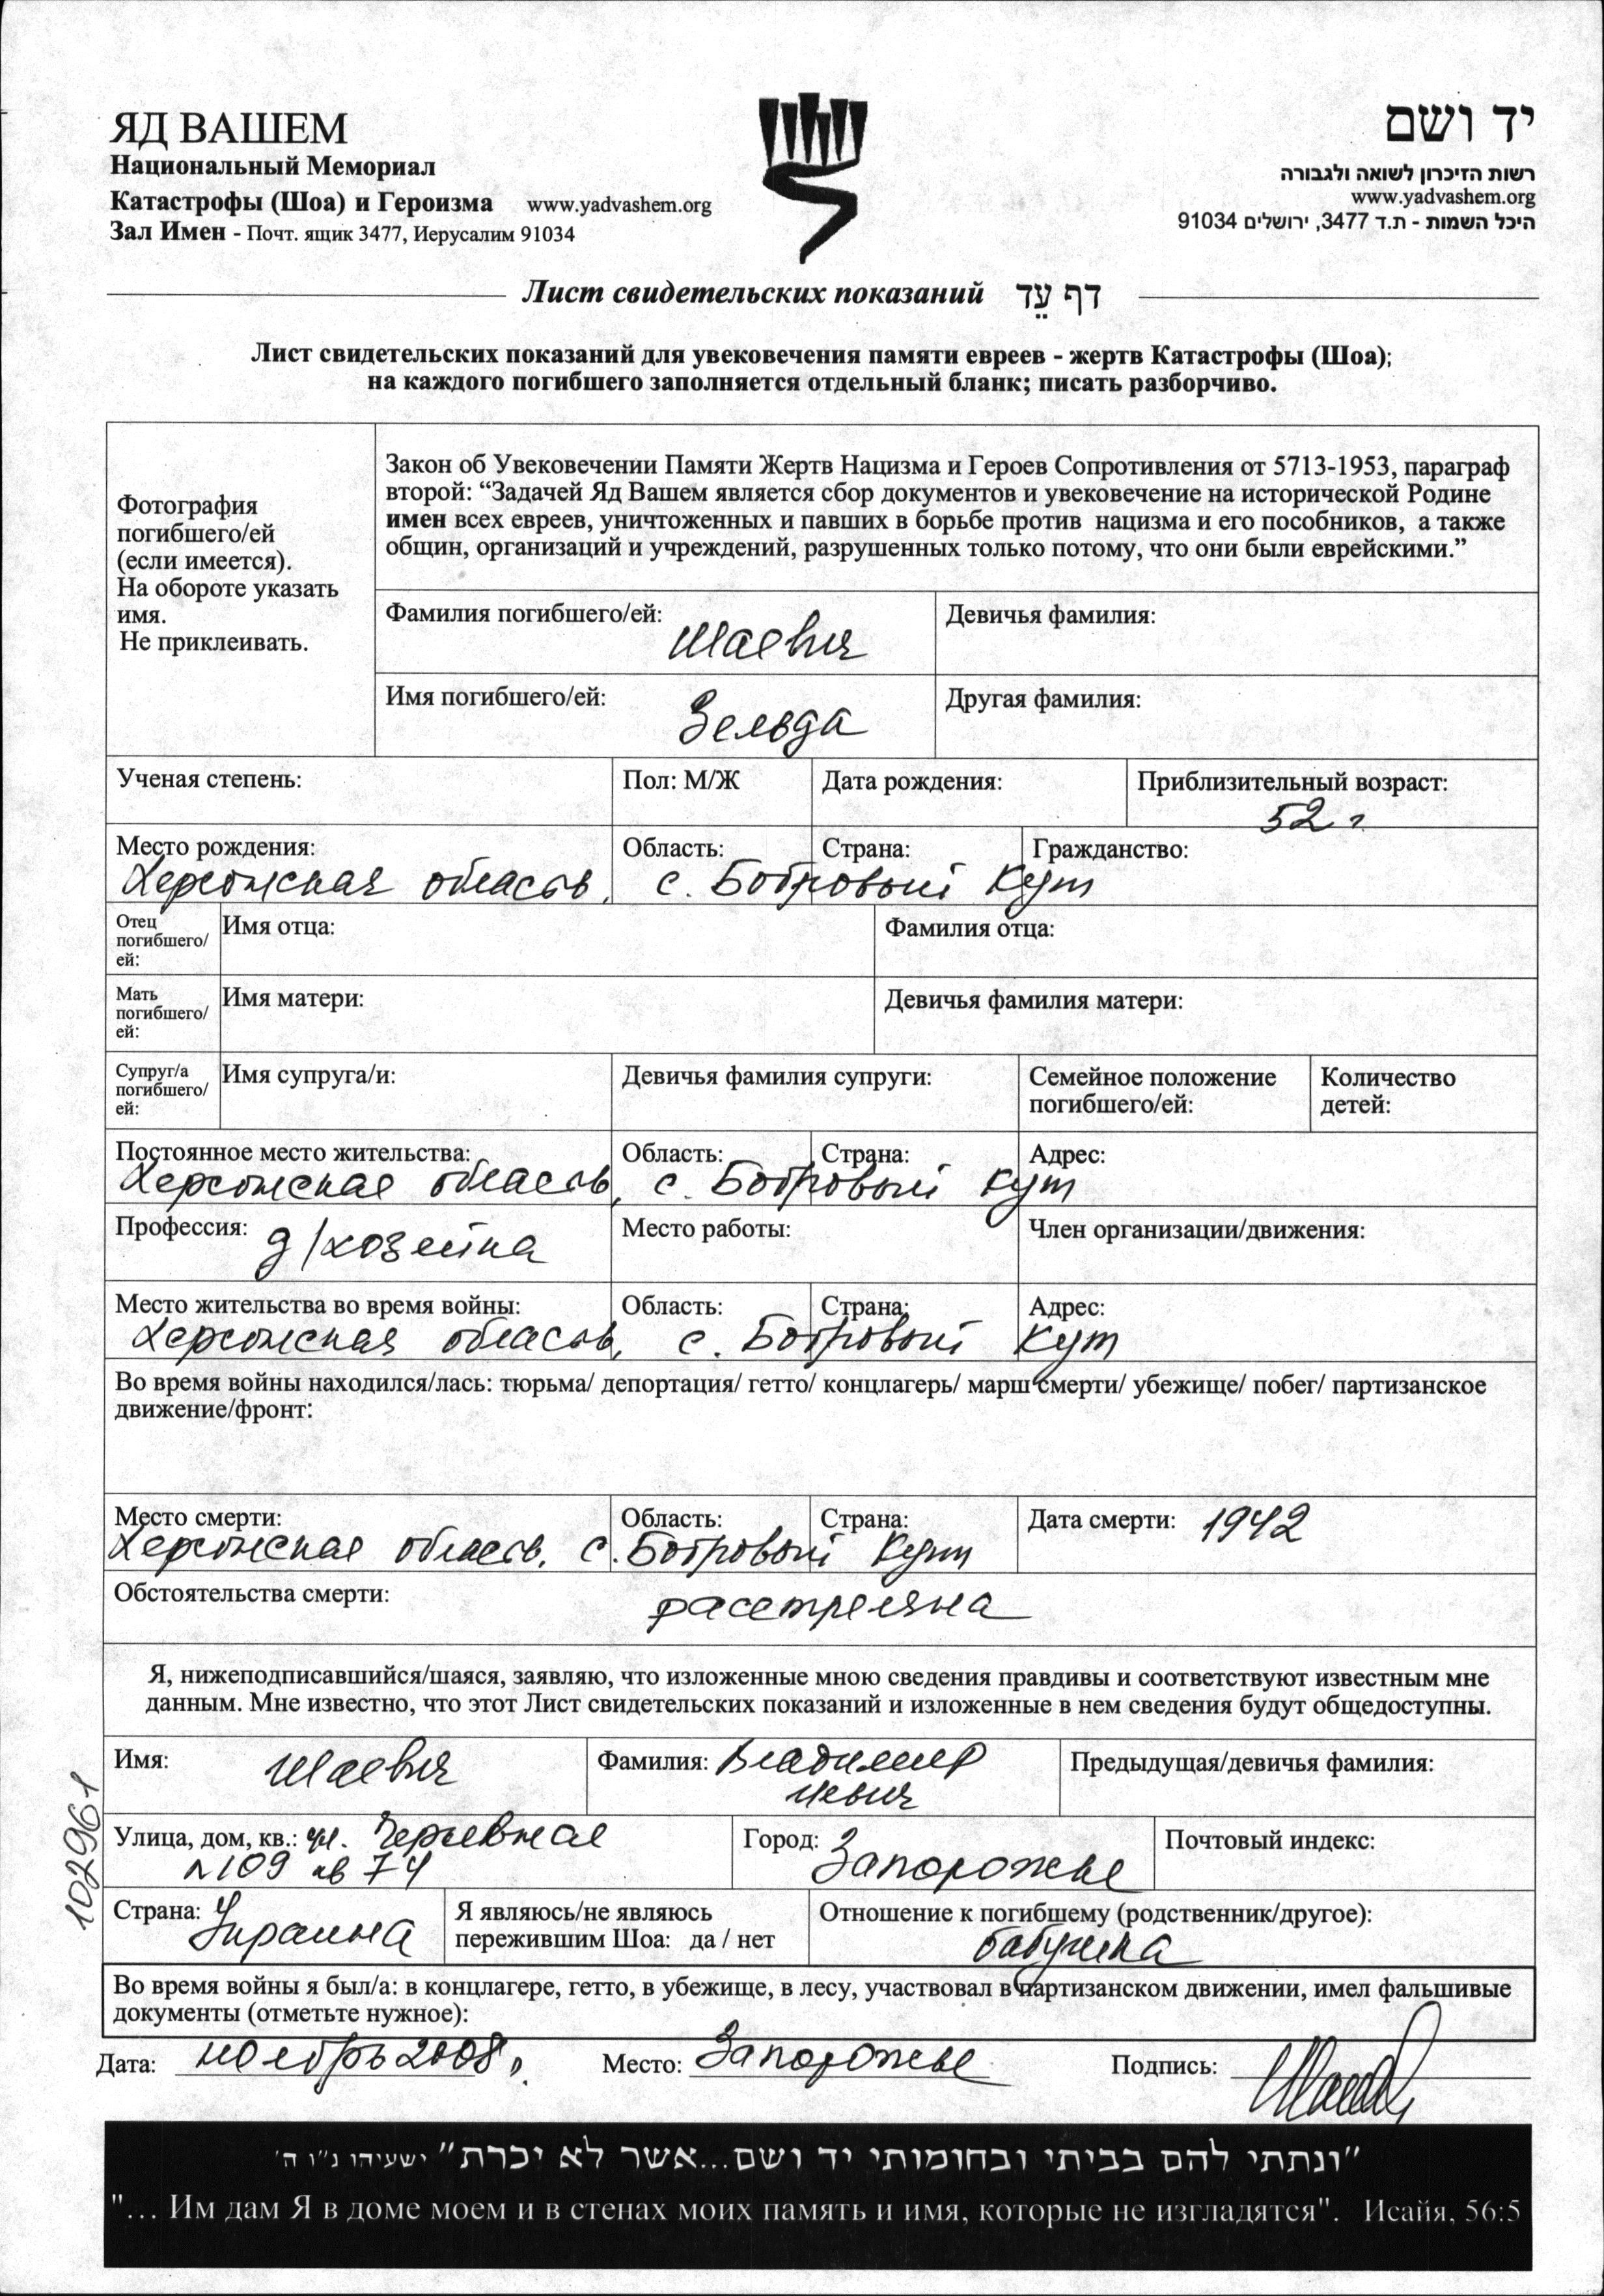 ЯД ВАШЕМ
Национальный Мемориал
Катастрофы (Шоа) и Героизма www.yadvashem.org
Зал Имен - Почт. ящик 3477, Иерусалим 91034
יד ושם
רשות הזיכרון לשואה ולגבורה
www.yadvashem.org
היכל השמות - ת.ד 3477, ירושלים 91034
Лист свидетельских показаний דף עֵד
Лист свидетельских показаний для увековечения памяти евреев - жертв Катастрофы (Шоа);
на каждого погибшего заполняется отдельный бланк; писать разборчиво.
Фотография
погибшего/ей
(если имеется).
На обороте указать
имя.
Не приклеивать.
Закон об Увековечении Памяти Жертв Нацизма и Героев Сопротивления от 5713-1953, параграф
второй: “Задачей Яд Вашем является сбор документов и увековечение на исторической Родине
имен всех евреев, уничтоженных и павших в борьбе против нацизма и его пособников, а также
общин, организаций и учреждений, разрушенных только потому, что они были еврейскими.”
Фамилия погибшего/ей: Шаевич Девичья фамилия:
Имя погибшего/ей: Зельда Другая фамилия:
Ученая степень: Пол: М/Ж Дата рождения: Приблизительный возраст:
52 г
Место рождения: Область: Страна: Гражданство:
Херсонская область, с. Бобровый Кут
Отец
погибшего/
ей:
Имя отца: Фамилия отца:
Мать
погибшего/
ей:
Имя матери: Девичья фамилия матери:
Супруг/а
погибшего/
ей:
Имя супруга/и: Девичья фамилия супруги: Семейное положение
погибшего/ей:
Количество
детей:
Постоянное место жительства: Область: Страна: Адрес:
Херсонская область, с. Бобровый Кут
Профессия: д/хозяйка Место работы: Член организации/движения:
Место жительства во время войны: Область: Страна: Адрес:
Херсонская область, с. Бобровый Кут
Во время войны находился/лась: тюрьма/ депортация/ гетто/ концлагерь/ марш смерти/ убежище/ побег/ партизанское
движение/фронт:
Место смерти: Область: Страна: Дата смерти: 1942
Херсонская область, с. Бобровый Кут
Обстоятельства смерти: расстреляна
Я, нижеподписавшийся/шаяся, заявляю, что изложенные мною сведения правдивы и соответствуют известным мне
данным. Мне известно, что этот Лист свидетельских показаний и изложенные в нем сведения будут общедоступны.
Имя: Шаевич Фамилия: Владимир Предыдущая/девичья фамилия:
Улица, дом, кв.: ул.
№ 109 кв 74
Город: Запорожье Почтовый индекс:
Страна: Украина Я являюсь/не являюсь
пережившим Шоа: да / нет
Отношение к погибшему (родственник/другое):
бабушка
Во время войны я был/а: в концлагере, гетто, в убежище, в лесу, участвовал в партизанском движении, имел фальшивые
документы (отметьте нужное):
Дата: ноябрь 2008 г. Место: Запорожье Подпись:
102961
"ונתתי להם בביתי ובחומותי יד ושם...אשר לא יכרת" ישעיהו נ"ו ה'
"... Им дам Я в доме моем и в стенах моих память и имя, которые не изгладятся". Исайя, 56:5